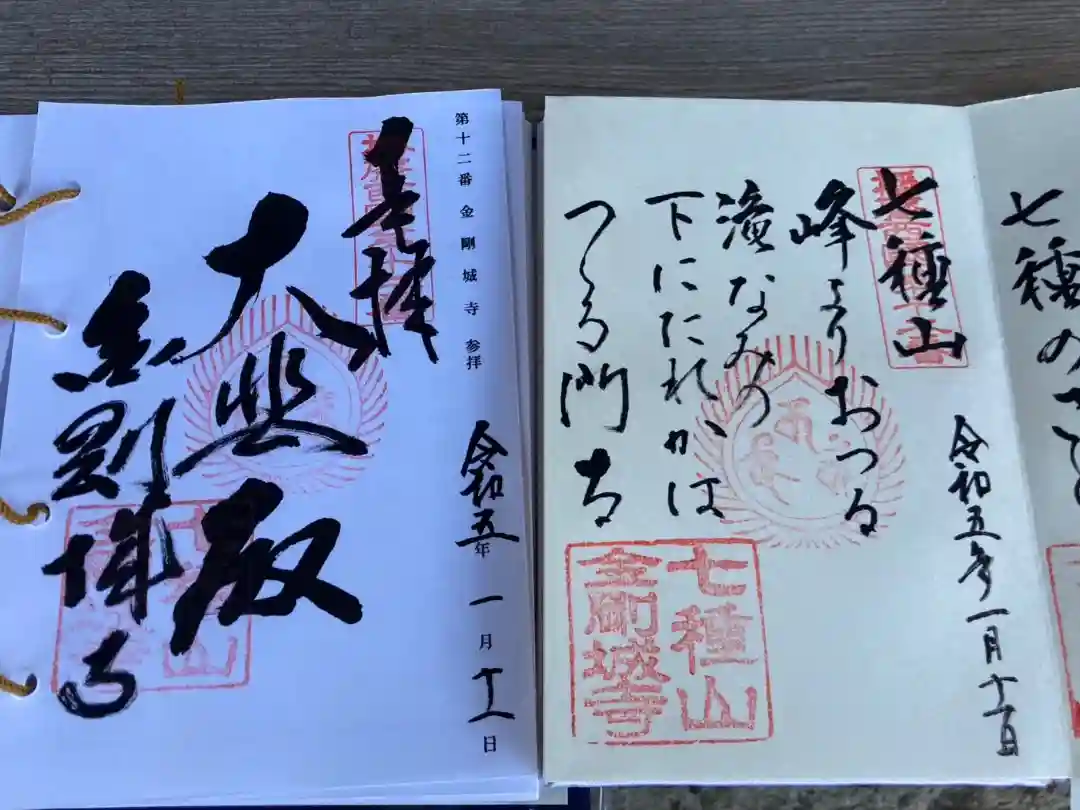 第十二番 金剛城寺 参拝
令和五年 一月十一日
奉拝
大悲殿
金剛城寺
七種の
令和五年一月十一日
七種山
峰よりおつる
滝なみの
下にたれかは
つくる門
七種山
金剛城寺